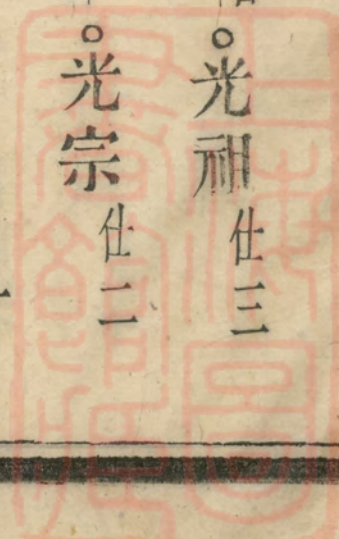 ○光祖 仕三
○光宗 仕二